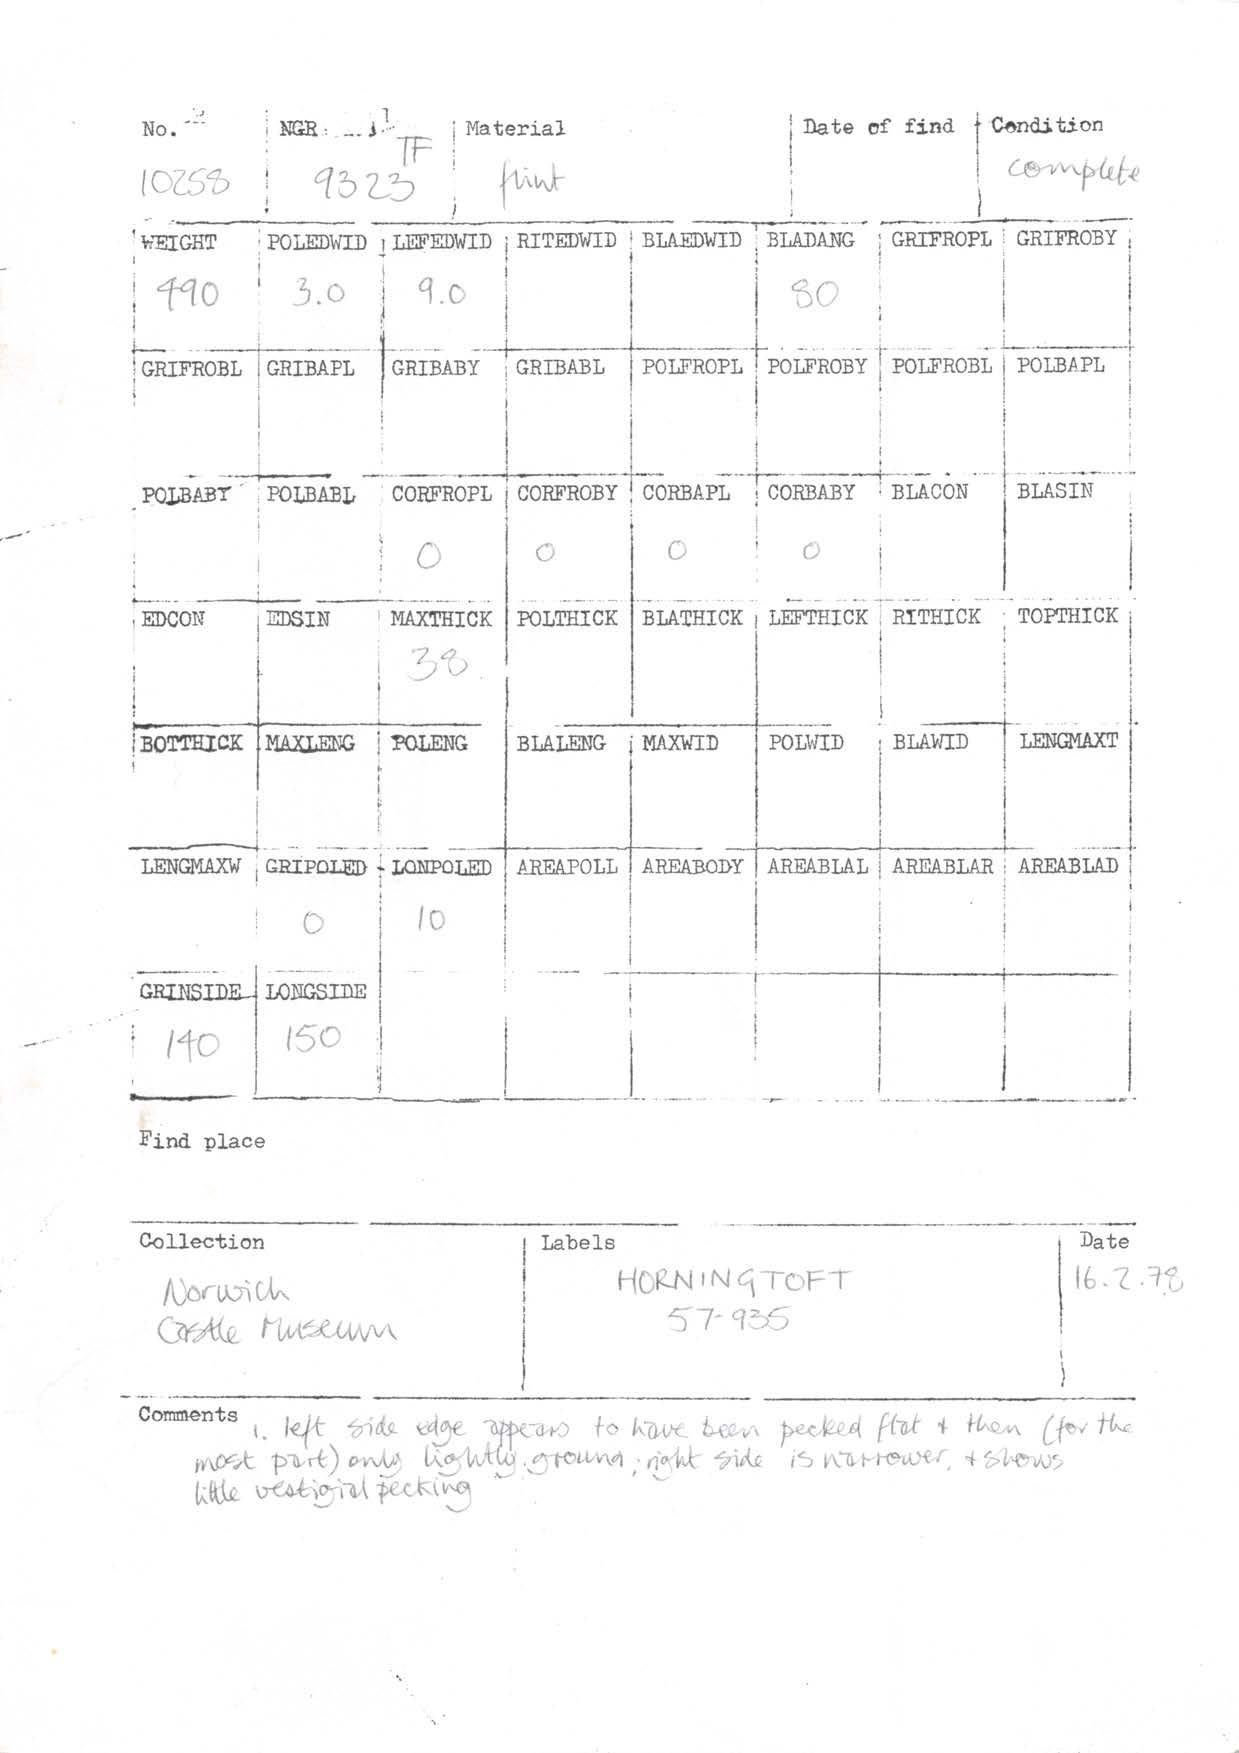 No. NGR Material Date of find Condition
10258 TF 9323 flint complete
WEIGHT POLEDWID LEFEDWID RITEDWID BLAEDWID BLADANG GRIFROPL GRIFROBY
490 3.0 9.0 80
GRIFROBL GRIBAPL GRIBABY GRIBABL POLFROPL POLFROBY POLFROBL POLBAPL
POLBABY POLBABL CORFROPL CORFROBY CORBAPL CORBABY BLACON BLASIN
0 0 0 0
EDCON EDSIN MAXTHICK POLTHICK BLATHICK LEFTHICK RITHICK TOPTHICK
38
BOTTHICK MAXLENG POLENG BLALENG MAXWID POLWID BLAWID LENGMAXT
LENGMAXW GRIPOLED LONPOLED AREAPOLL AREABODY AREABLAL AREABLAR AREABLAD
0 10
GRINSIDE LONGSIDE
140 150
Find place
Collection Labels Date
Norwich HORNINGTOFT 16.2.78
Castle Museum 57-935
Comments 1. left side edge appears to have been pecked flat + then (for the
most part) only lightly ground; right side is narrower, + shows
little vestigial pecking